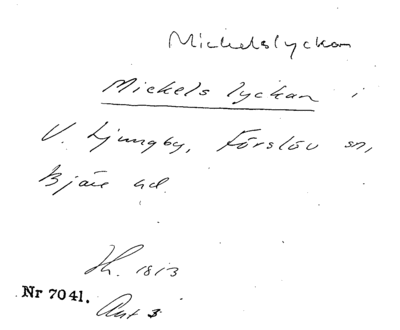 Michelslyckan
Mickels lyckan i
V. Ljungby, Förslöv sn,
Bjäre hd.
Hh. 1813
Nr 7041.
Akt 3